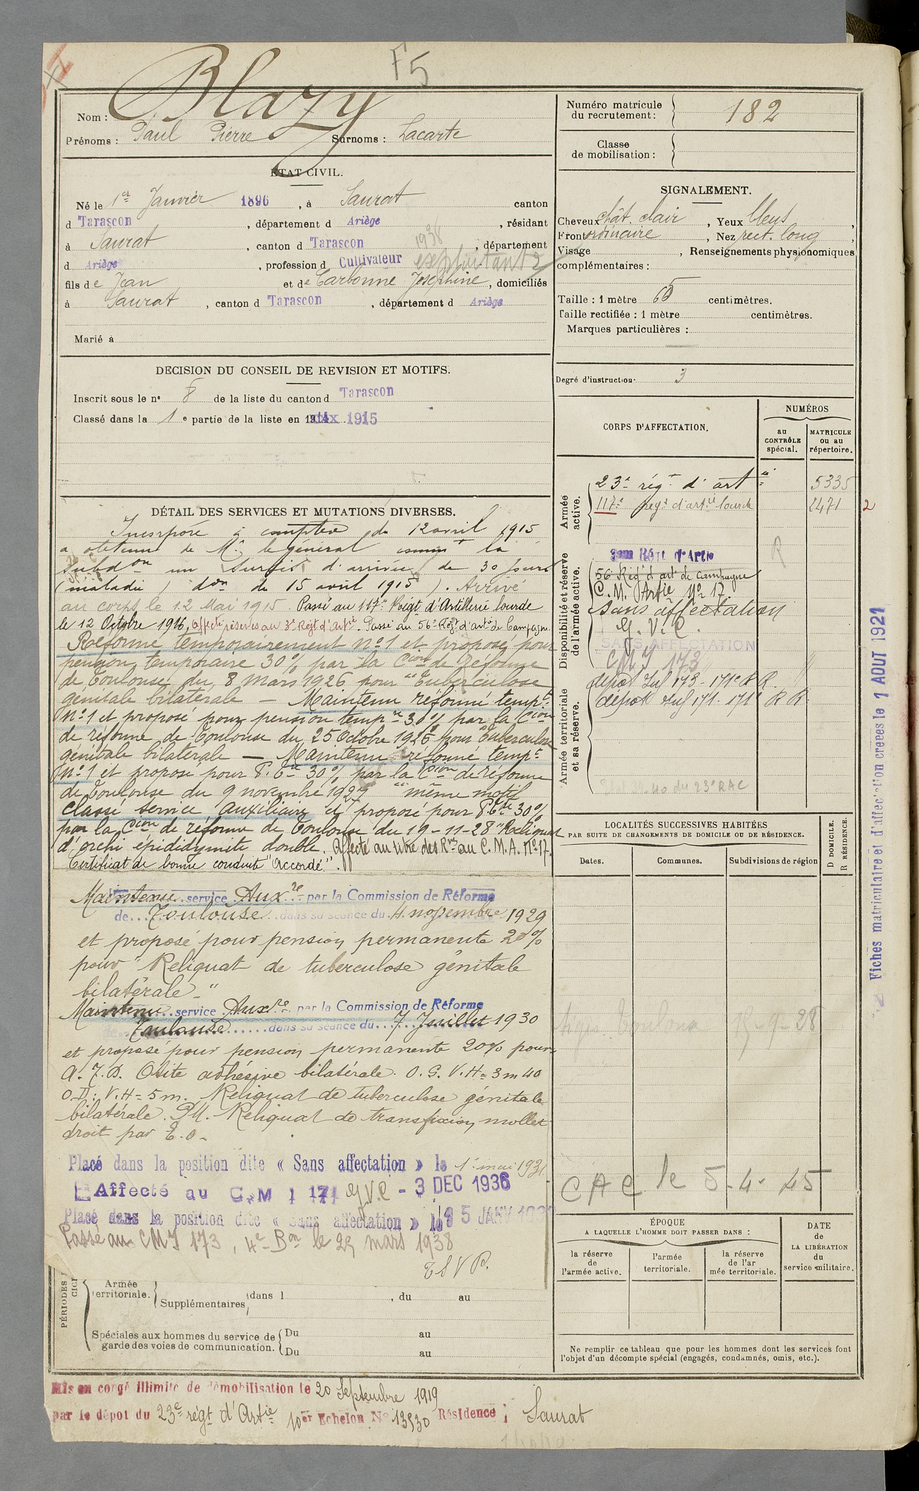 F5
Nom : Blazy
Prénoms : Paul Pierre Surnoms : Lacarte
ÉTAT CIVIL.
Né le 1er Janvier 1896, à Saurat canton
d Tarascon, département d Ariège, résidant
à Saurat, canton d Tarascon, département
1938
d Ariège, profession d Cultivateur exploitant
fils de Jean et de Carbonne Joséphine, domiciliés
à Saurat, canton d Tarascon, département d Ariège
Marié à
DÉCISION DU CONSEIL DE REVISION ET MOTIFS.
Inscrit sous le no 8 de la liste du canton d Tarascon
Classé dans la 1e partie de la liste en 1915
DÉTAIL DES SERVICES ET MUTATIONS DIVERSES.
Incorporé à compter du 12 avril 1915
a obtenu de Mr le général commt la
Subdon un Sursis d'arrivée de 30 jours
(maladie) don de 15 avril 1915). Arrivé
au corps le 12 Mai 1915. Passé au 117e Régt d'Artillerie lourde
le 12 Octobre 1916, Passé au 56e Régt d'Artie de Campagne
Réformé temporairement No 1 et proposé pour
pension temporaire 30% par la Cion de Réforme
de Toulouse du 8 Mars 1926 pour "Tuberculose
génitale bilatérale — Maintenu réformé tempre
No 1 et proposé pour pension tempre 30% par la Cion
de réforme de Toulouse du 25 Octobre 1926 pour tuberculose
génitale bilatérale — Maintenu réformé tempre
No 1 et proposé pour P. 30% par la Cion de réforme
de Toulouse du 9 novembre 1927 "même motif
Classé service auxiliaire et proposé pour P. 30%
par la Cion de réforme de Toulouse du 19-11-28 "Reliquat
d'orchi épididymite double. Affecté au titre des Rves au C.M.A. No 17
Certificat de bonne conduite "Accordé"
Maintenu service Auxre par la Commission de Réforme
de Toulouse dans sa séance du 4 novembre 1929
et proposé pour pension permanente 20%
pour "Reliquat de tuberculose génitale
bilatérale"
Maintenu service Auxre par la Commission de Réforme
Toulouse dans sa séance du 7 Juillet 1930
et proposé pour pension permanente 20% pour
Otite adhésive bilatérale. O.G. V.H = 3m40
O.D: V.H = 5m. Reliquat de tuberculose génitale
bilatérale. Reliquat de transfixion mollet
droit par E.O.
Placé dans la position dite « Sans affectation » le 1er mai 193
Affecté au C.M I 171 G.V.C - 3 DEC 1936
Placé dans la position dite « Sans affectation » le 15 JANV 193
Passé au CMI 173, 4e Bon le 25 mars 1938
Armée territoriale. Supplémentaires, dans l , du au
Spéciales aux hommes du service de garde des voies de communication. Du au
Du au
Mis en congé illimité de démobilisation le 20 Septembre 1919
par le dépot du 23e régt d'Artie 10er Echelon No 13930 Résidence : Saurat
Numéro matricule du recrutement : 182
Classe de mobilisation :
SIGNALEMENT.
Cheveux chât. clair, Yeux bleus,
Front ordinaire, Nez rect. long,
Visage , Renseignements physionomiques
complémentaires :
Taille : 1 mètre 65 centimètres.
Taille rectifiée : 1 mètre centimètres.
Marques particulières :
Degré d'instruction 3
CORPS D'AFFECTATION.
NUMÉROS
au CONTRÔLE spécial.
MATRICULE ou au répertoire.
Armée active.
23e régt d'artie 5335
117e régt d'artie lourde 2471 2
Disponibilité et réserve de l'armée active.
R
56e Rég d'art de Campagne
C.M. Artie No 17
Sans affectation
G.V.C.
SANS AFFECTATION
CMI 173
Armée territoriale et sa réserve.
LOCALITÉS SUCCESSIVES HABITÉES
PAR SUITE DE CHANGEMENTS DE DOMICILE OU DE RÉSIDENCE.
D DOMICILE.
R RÉSIDENCE.
Dates. Communes. Subdivisions de région
CAC le 5-4-45
ÉPOQUE
A LAQUELLE L'HOMME DOIT PASSER DANS :
la réserve de l'armée active.
l'armée territoriale.
la réserve de l'armée territoriale.
DATE DE LA LIBÉRATION du service militaire.
Ne remplir ce tableau que pour les hommes dont les services font
l'objet d'un décompte spécial (engagés, condamnés, omis, etc.).
Fiches matriculaire et d'affectation créées le 1 AOUT 1921